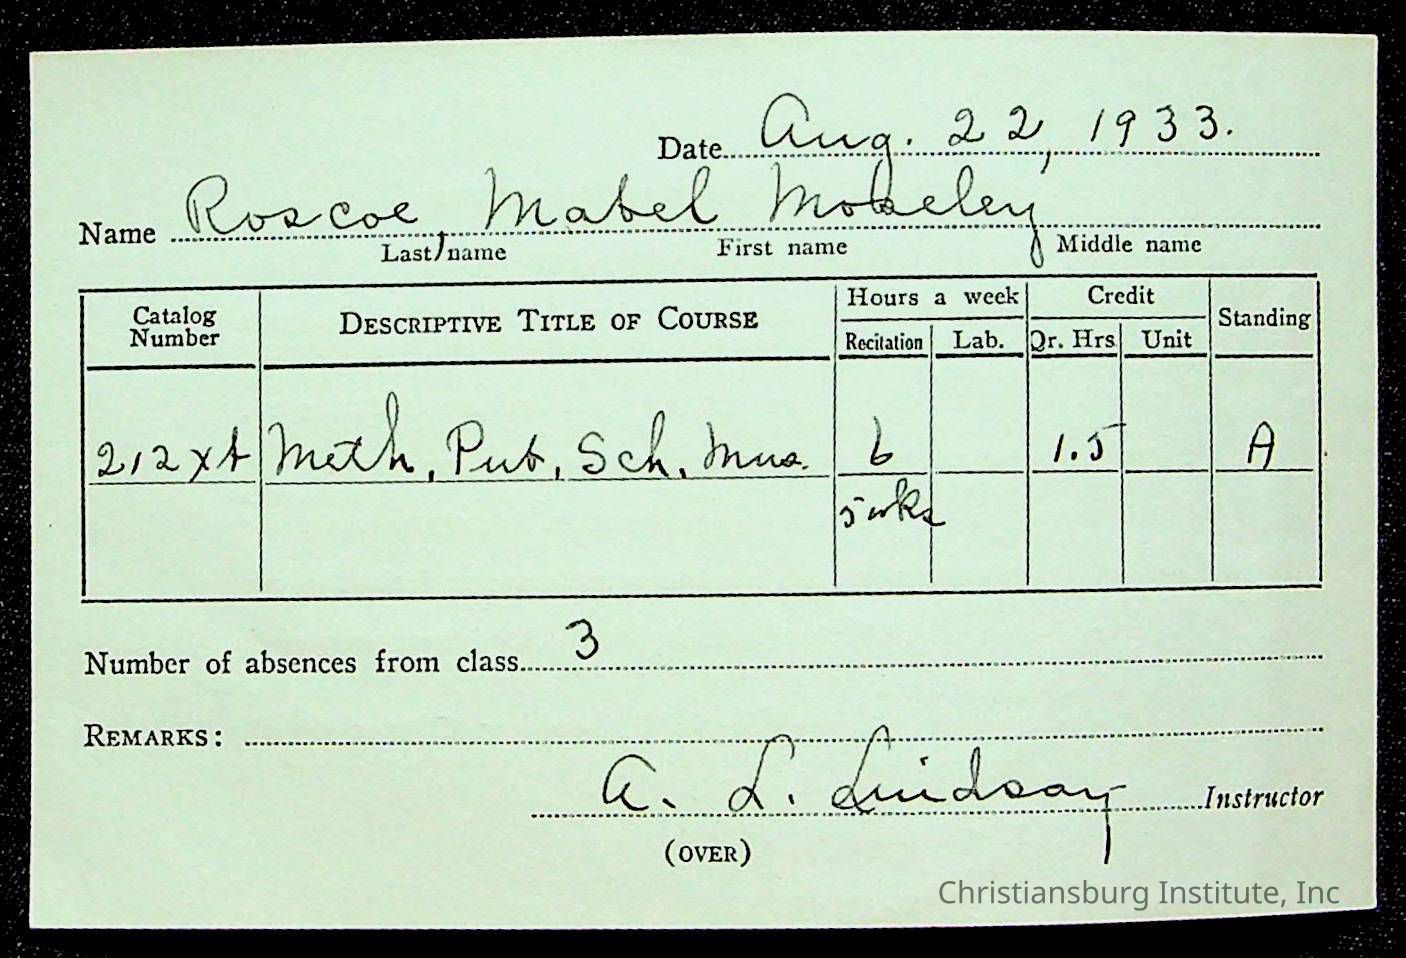 Date Aug. 22, 1933.
Name Roscoe, Mabel Moseley
Last name First name Middle name
Catalog Number DESCRIPTIVE TITLE OF COURSE Hours a week Credit Standing
Recitation Lab. Qr. Hrs Unit
212xt Meth. Pub. Sch. Mus. 6 1.5 A
5 wks
Number of absences from class 3
REMARKS:
A. L. Lindsay Instructor
(OVER)
Christiansburg Institute, Inc